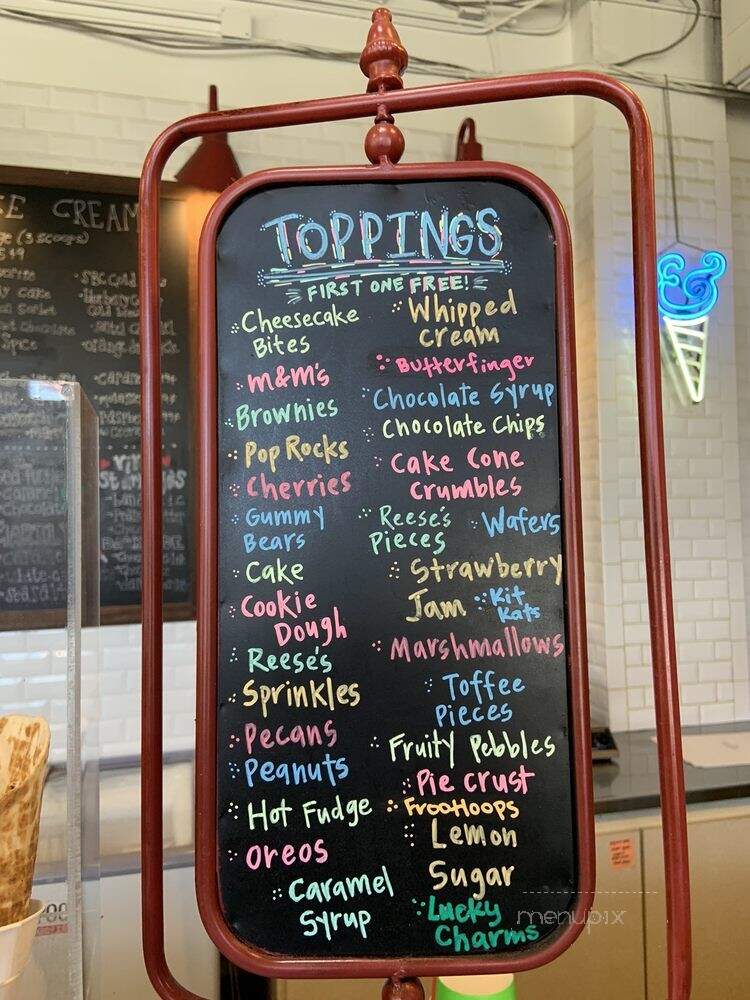 TOPPINGS
FIRST ONE FREE!
Cheesecake
Bites
M&M's
Brownies
Pop Rocks
Cherries
Gummy
Bears
Cake
Cookie
Dough
Reese's
Sprinkles
Pecans
Peanuts
Hot Fudge
Oreos
Caramel
Syrup
Whipped
Cream
Butterfinger
Chocolate Syrup
Chocolate Chips
Cake Cone
Crumbles
Reese's
Pieces
Wafers
Strawberry
Jam
Kit
Kats
Marshmallows
Toffee
Pieces
Fruity Pebbles
Pie Crust
FrootLoops
Lemon
Sugar
Lucky
Charms
CREAM
(3 scoops)
&
menupix